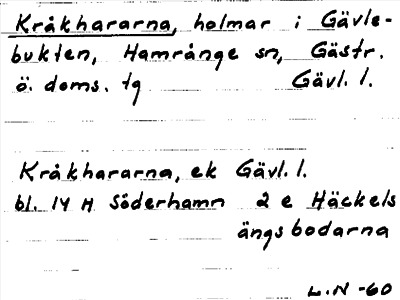 Kråkhararna, holmar i Gävle-
bukten, Hamrånge sn, Gästr.
ö. doms. tg Gävl. l.
Kråkhararna, ek Gävl. l.
bl. 14 H Söderhamn 2 e Häckels
ängsbodarna
L.N -60